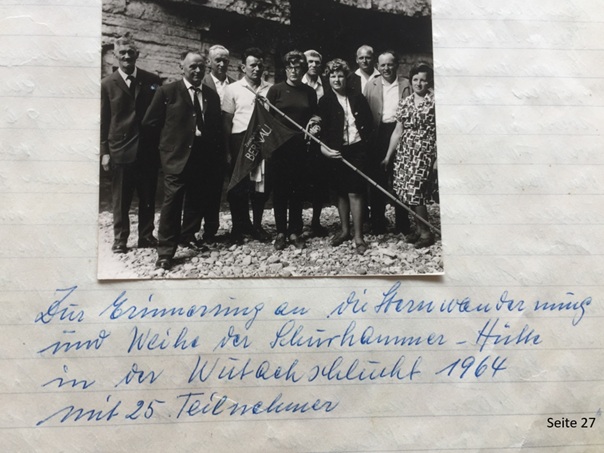 BERNAU
Zur Erinnerung an die Sternwanderung
und Weihe der Schurhammer-Hütte
in der Wutachschlucht 1964
mit 25 Teilnehmer
Seite 27